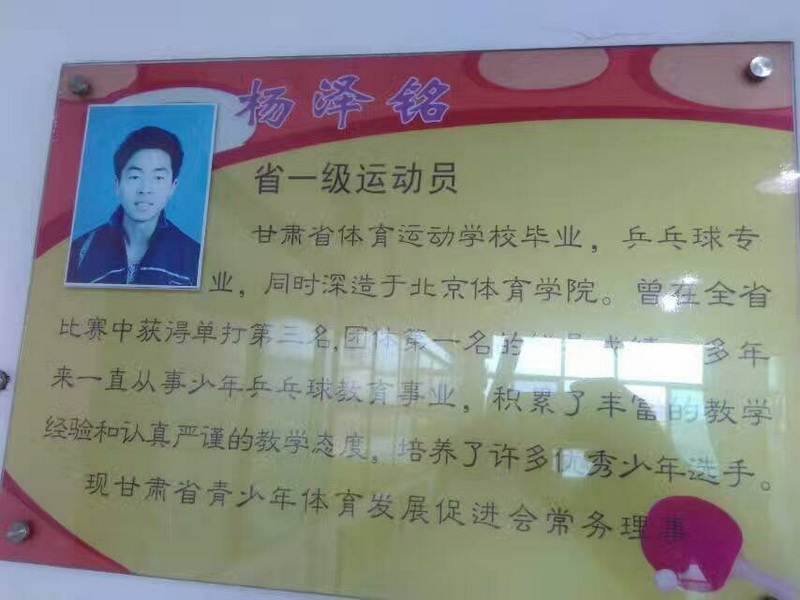 杨泽铭
省一级运动员
甘肃省体育运动学校毕业，乒乓球专
业，同时深造于北京体育学院。曾在全省
比赛中获得单打第三名,团体第一名的 成绩 多年
来一直从事少年乒乓球教育事业，积累了丰富的教学
经验和认真严谨的教学态度，培养了许多优秀少年选手。
现甘肃省青少年体育发展促进会常务理事